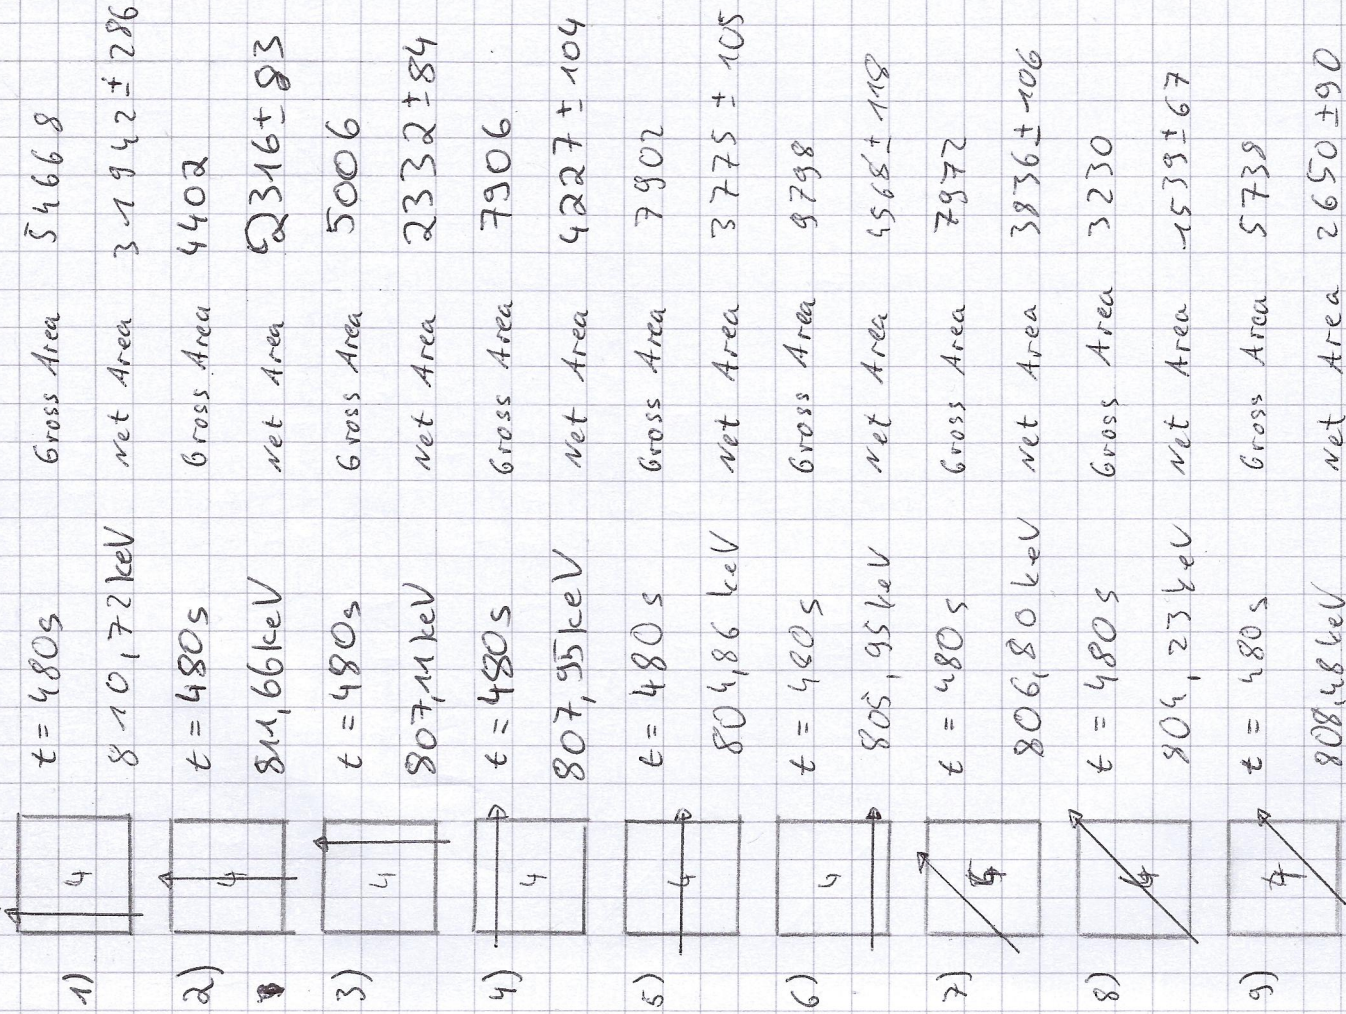 1) 4 t = 480s Gross Area 54668
810,72 keV Net Area 31942 ± 286
2) 4 t = 480s Gross Area 4402
811,66 keV Net Area 2316 ± 83
3) 4 t = 480s Gross Area 5006
807,11 keV Net Area 2332 ± 84
4) 4 t = 480s Gross Area 7906
807,95 keV Net Area 4227 ± 104
5) 4 t = 480s Gross Area 7902
804,86 keV Net Area 3775 ± 105
6) 4 t = 480s Gross Area 9798
805,95 keV Net Area 4568 ± 118
7) t = 480s Gross Area 7972
806,80 keV Net Area 3836 ± 106
8) 4 t = 480s Gross Area 3230
804,23 keV Net Area 1539 ± 67
9) 4 t = 480s Gross Area 5738
808,48 keV Net Area 2650 ± 90